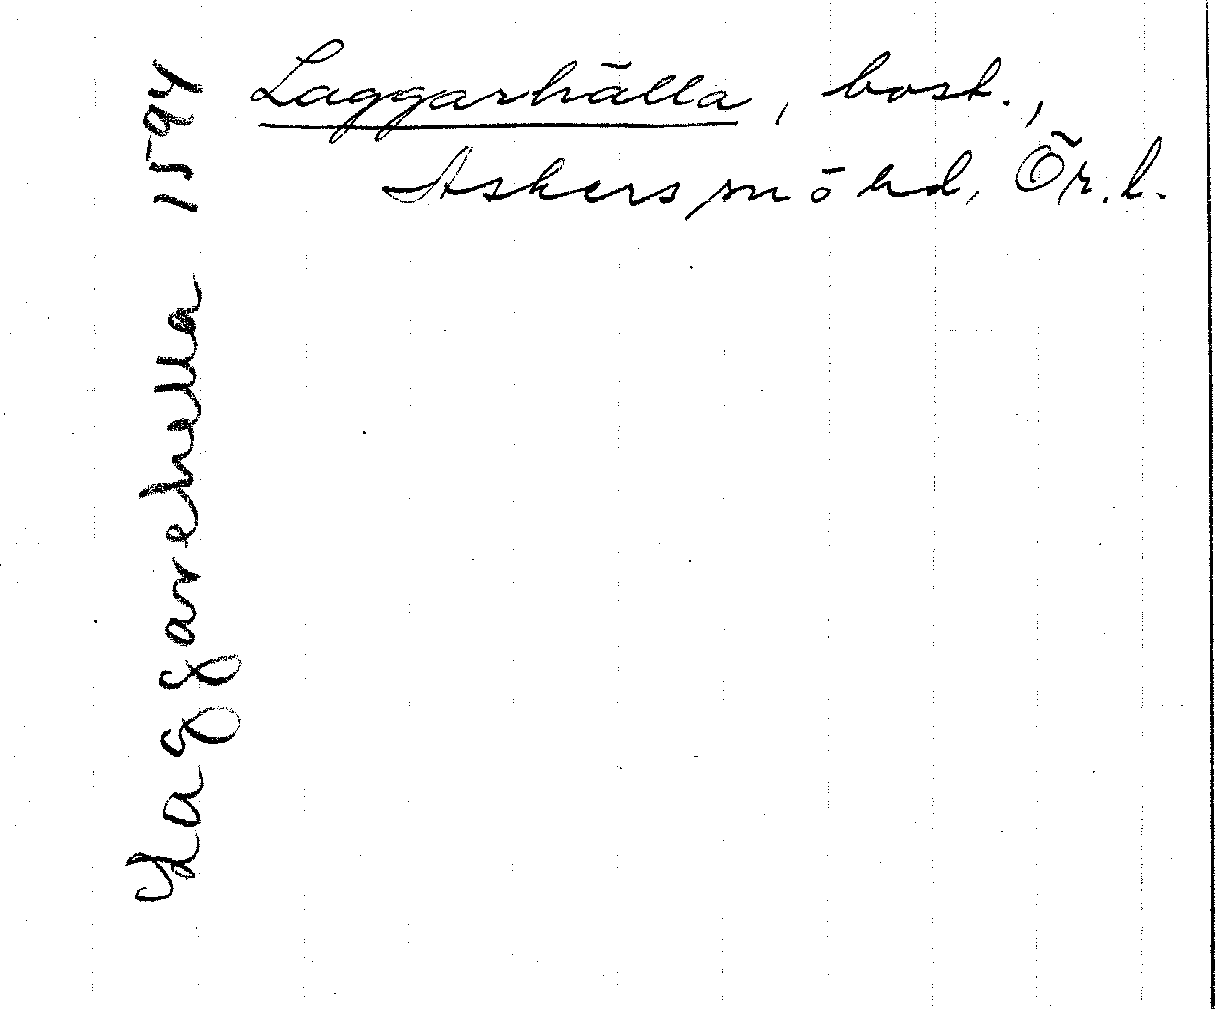 Laggarhälla, bost.,
Askers sn ō hd, Ör. l.
Laggarehella 1594